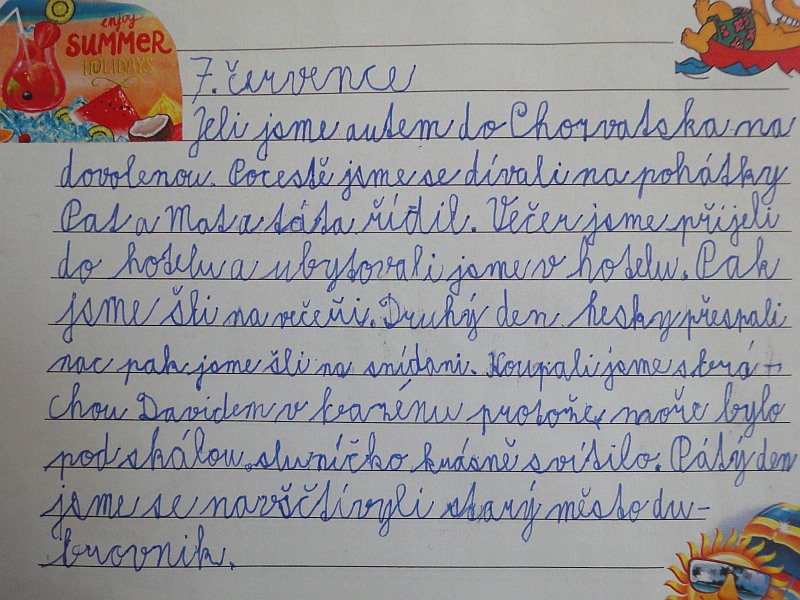 enjoy
SUMMER
HOLIDAYS
7. července
Jeli jsme autem do Chorvatska na
dovolenou. Pocestě jsme se dívali na pohátky
Pat a Mat a táta řídil. Večer jsme přijeli
do hotelu a ubytovali jsme v hotelu. Pak
jsme šli na večeři. Druhý den hesky přespali
nac pak jsme šli na snídani. Koupali jsme s brá-
chou Davidem v bazénu protože moře bylo
pod skálou. sluníčko krásně svítilo. Pátý den
jsme se navščtívyli starý město du-
brovnik.